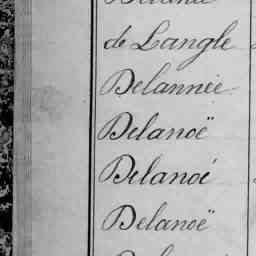 de Langle
Delannée
Delanoë
Delanoé
Delanoë